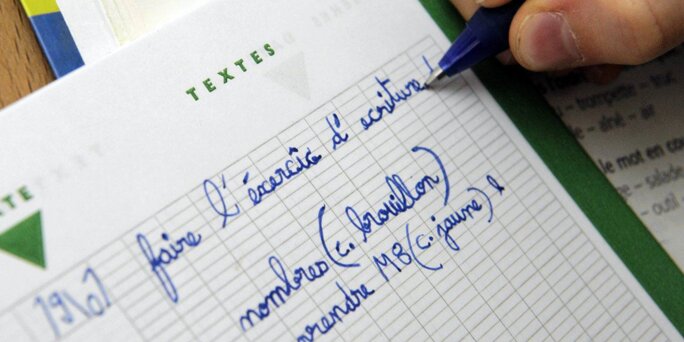 TEXTES
TE
19/01
faire l'éxercice d'écriture!
nombres (c. brouillon)
prendre M8 (c. jaune)!
trompette – truc
aîné – air
le mot en cou
salade
outil